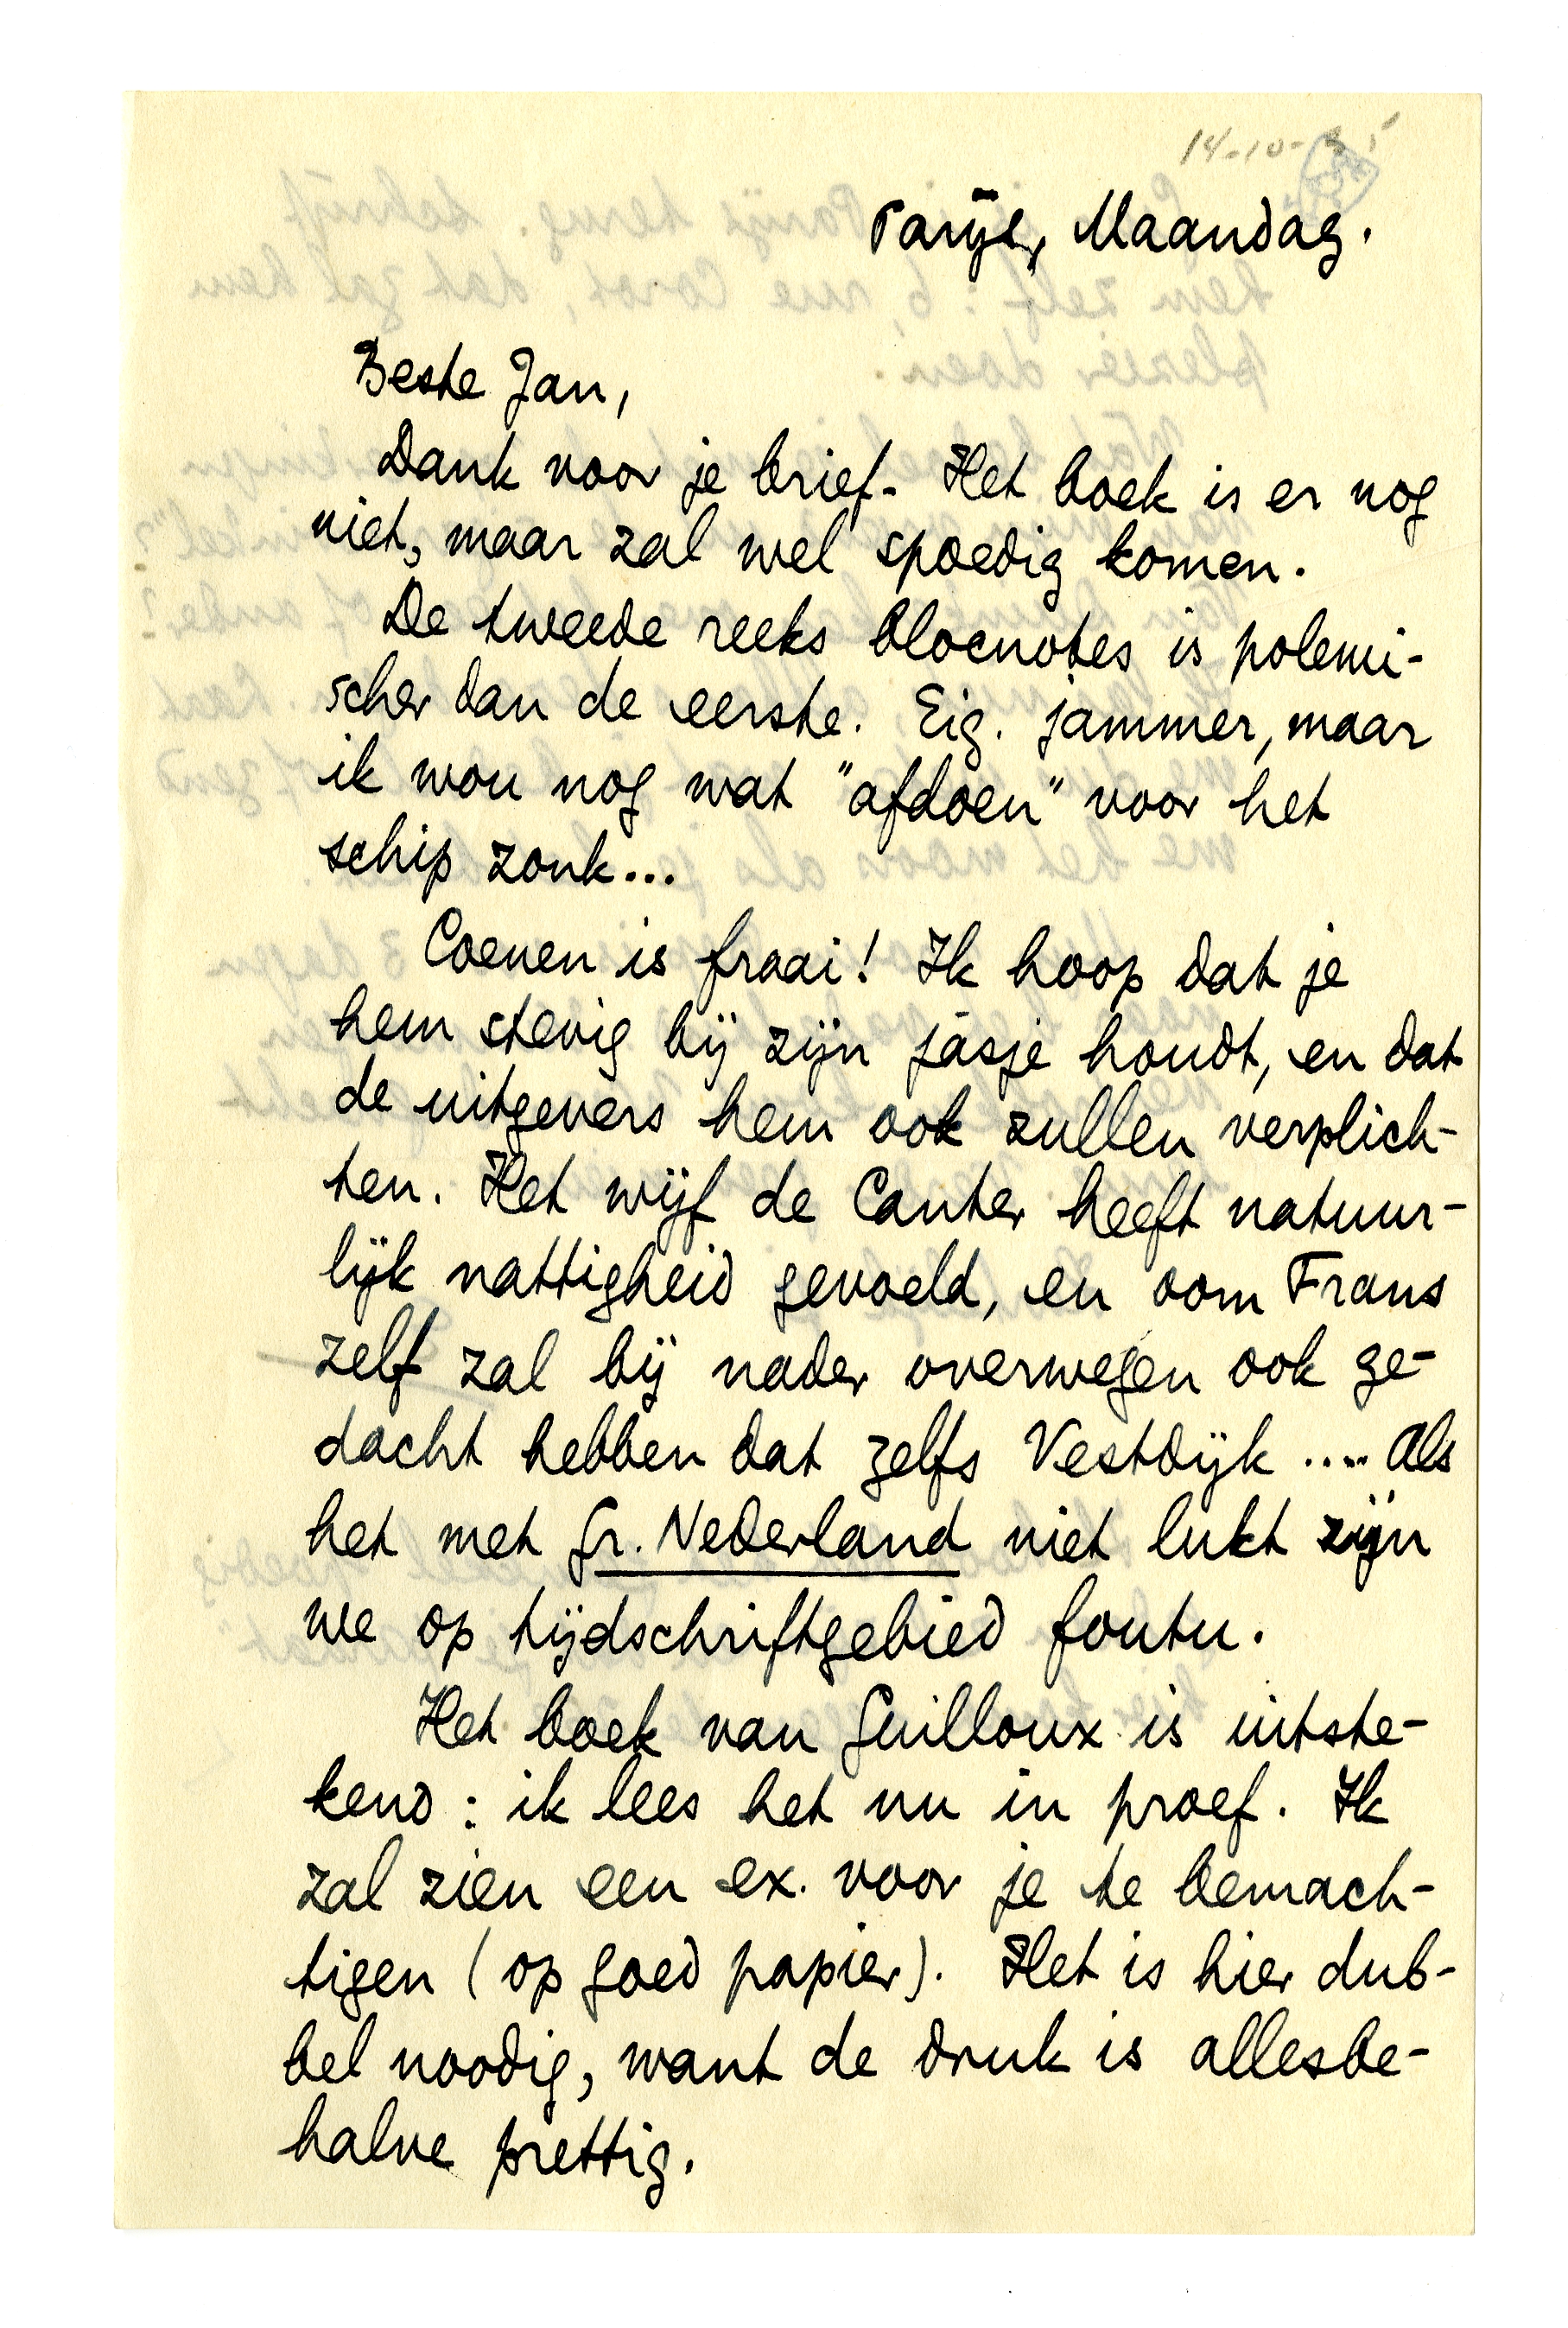 14-10-35
Parijs, Maandag.
Beste Jan,
Dank voor je brief. Het boek is er nog
niet, maar zal wel spoedig komen.
De tweede reeks blocnotes is polemi-
scher dan de eerste. Eig. jammer, maar
ik wou nog wat "afdoen" voor het
schip zonk...
Coenen is fraai! Ik hoop dat je
hem stevig bij zijn jasje houdt, en dat
de uitgevers hem ook zullen verplich-
ten. Het wijf de Canter heeft natuur-
lijk nattigheid gevoeld, en oom Frans
zelf zal bij nader overwegen ook ge-
dacht hebben dat zelfs Vestdijk .... Als
het met Gr. Nederland niet lukt zijn
we op tijdschriftgebied foutu.
Het boek van Guilloux is uitste-
kend: ik lees het nu in proef. Ik
zal zien een ex. voor je te bemach-
tigen (op goed papier). Het is hier dub-
bel noodig, want de druk is allesbe-
halve prettig.